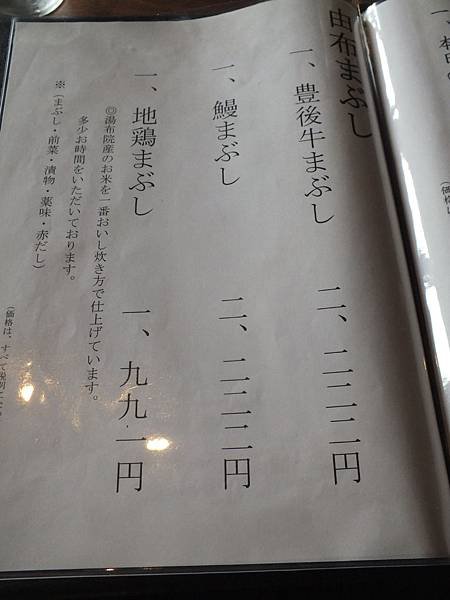 一、本
(価格は
由布まぶし
一、豊後牛まぶし 二、二二二円
一、鰻まぶし 二、二二二円
一、地鶏まぶし 一、九九一円
◎湯布院産のお米を一番おいし炊き方で仕上げています。
多少お時間をいただいております。
※(まぶし・前菜・漬物・薬味・赤だし)
(価格は、すべて税別